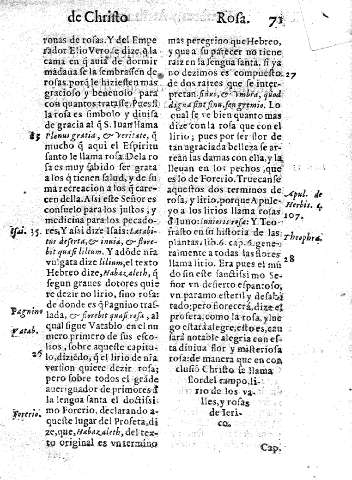 de Christo Rosa. 71
ronas de rosas. Y del Empe-
rador Elio Vero, se dize, q̃ la
cama en q̃ auia de dormir
mãdaua se la sembrassen de
rosas, porq̃ le hiziessen mas
gracioso y beneuolo para
con quantos tratasse. Pues si
la rosa es simbolo y diuisa
de gracia al q̃ S. Iuan llama
25
Plenus gratiæ, & veritate, q̃
mucho q̃ aqui el Espiritu
santo le llama rosa. De la ro
sa es muy sabido ser grata
a los q̃ tienen salud, y de su
ma recreacion a los q̃ care-
cen della. Assi este Señor es
consuelo para los justos, y
medicina para los pecado-
Isai. 35.
res, Y assi dize Isais: Lætabi-
tur deserta, & inuia, & flore-
bit quasi lilium. Y adõde nr̃a
vulgata dize lilium, el texto
Hebreo dize, Habazaleth, q̃
segun graues dotores quie
re dezir no lirio, sino rosa:
Pagnino
de donde es q̃ Pagnino tras
lada, & florebit quasi rosa, al
Vatab.
qual sigue Vatablo en el nu
mero primero de sus esco-
lios, sobre aqueste capitu-
26
lo, dizẽdo, q̃ el lirio de nr̃a
version quiere dezir rosa;
pero sobre todos el grãde
aueriguador de primores d̃
la lengua santa el doctissi
mo Forerio, declarando a
Forerio.
queste lugar del Profeta, di
ze, que, Habazaleth, del tex-
to original es vn termino
mas peregrino que Hebreo,
y que a su parecer no tiene
raiz en la lengua santa, si ya
no dezimos es compuesto
27
de dos raizes que se inter-
pretan
digna sint sinu, seu gremio. Lo
qual se ve bien quanto mas
dize con la rosa que con el
lirio; pues por ser flor de
tan agraciada belleza se ar-
rean las damas con ella, y la
lleuan en los pechos, que
es lo de Forerio. Truecan se
aquestos dos terminos de
Apul. de
rosa, y lirio, porque Apule-
Herbis. c.
yo a los lirios llama rosas
107.
d̃ Iuno: iunonis rosa: Y Teo-
Theophra.
frasto en su historia de las
plantas, lib. 6. cap. 6. gene-
ralmente a todas las flores
28
llama lirio. Era pues el mũ
do sin este santissimo Se-
ñor vn desierto espantoso,
vn paramo esteril y desaba
trado; pero florecerá, dize el
profeta, como la rosa, y lue
go estará alegre, esto es, cau
sará notable alegria con es-
ta diuina flor y misteriosa
rosa: de manera que en con
clusiõ Christo se llama
flor del campo, li-
rio de los va-
lles, y rosa
de Ieri-
co.
Cap.